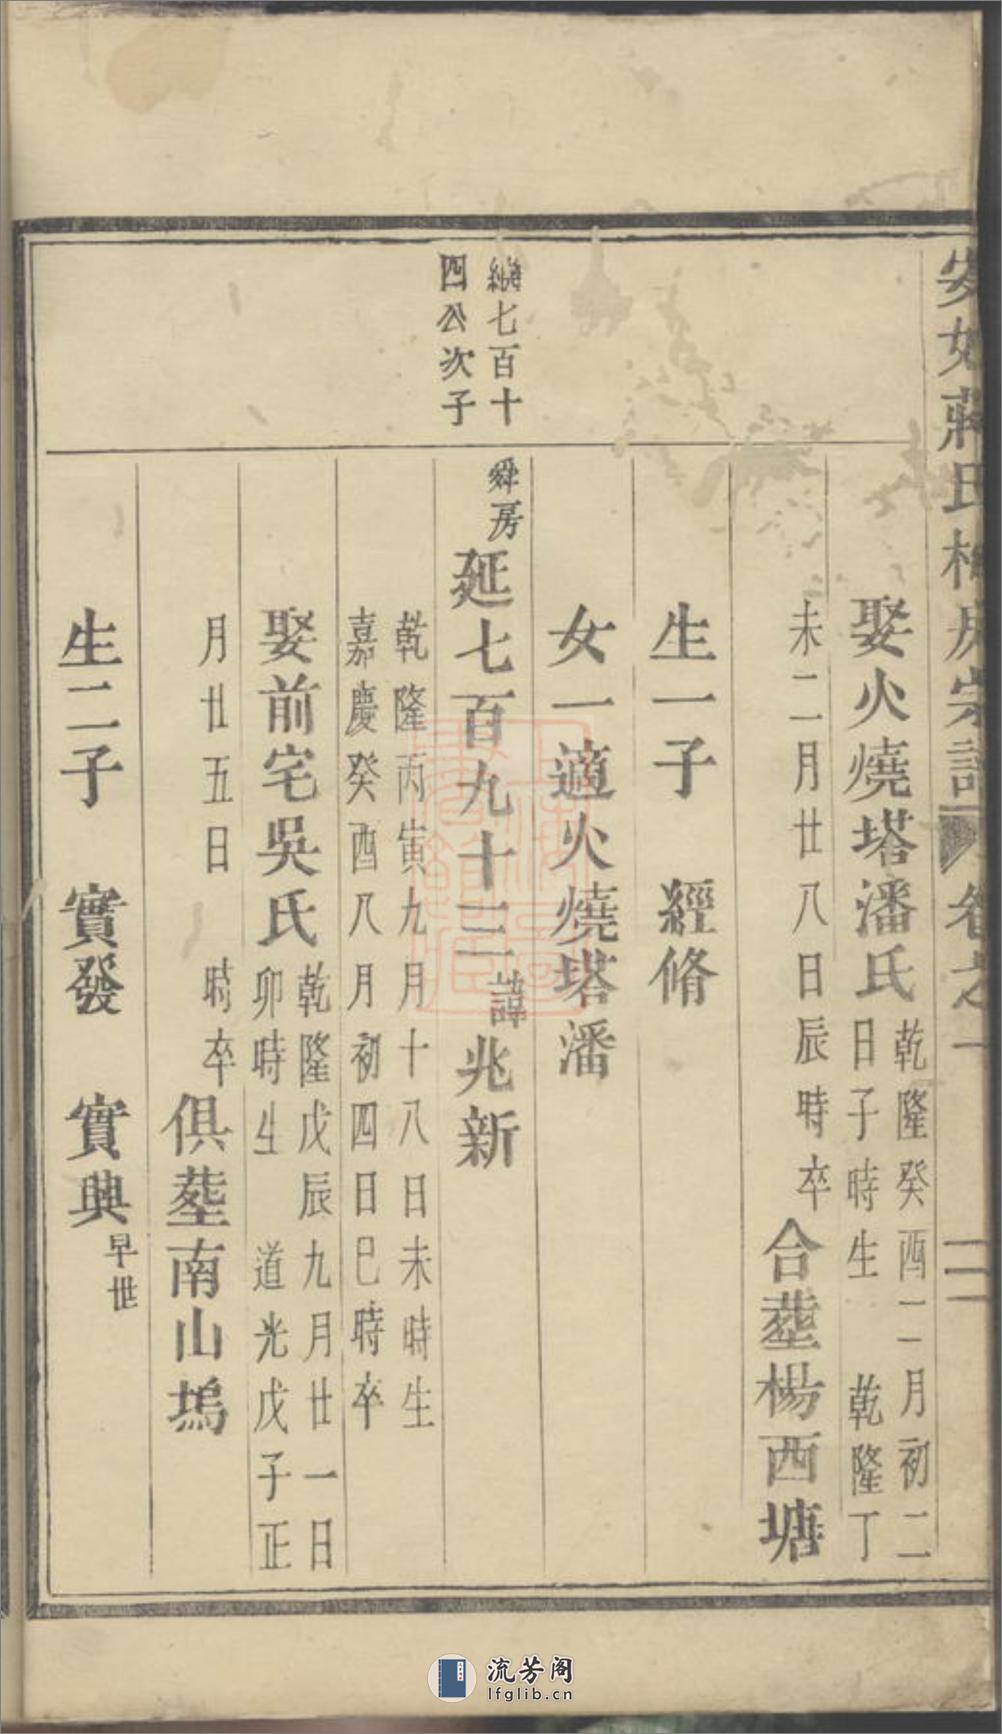 蔣氏
宗
卷之一
娶火燒塔潘氏
乾隆癸酉二月初二
日子時生 乾隆丁
未二月廿八日辰時卒
合塟楊西塘
生一子 經脩
女一適火燒塔潘
七百十
四公次子
舜房
延七百九十三
諱
兆新
乾隆丙寅九月十八日未時生
嘉慶癸酉八月初四日巳時卒
娶前宅吳氏
乾隆戊辰九月廿一日
卯時生 道光戊子正
月廿五日 時卒
俱塟南山塢
生二子 實發 實典
早世
流芳阁
lfglib.cn